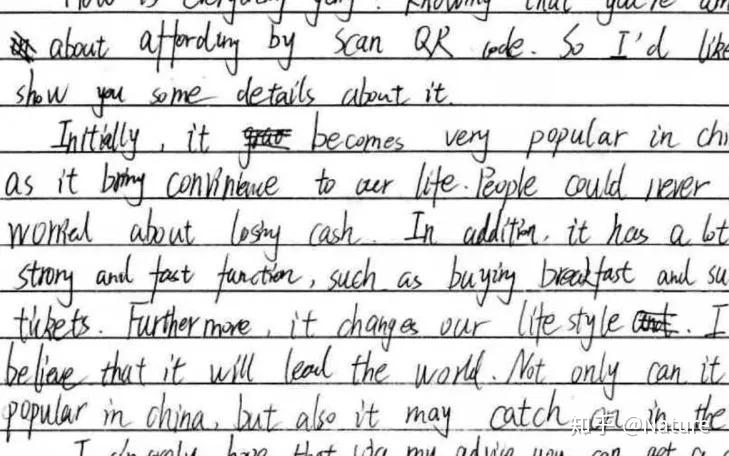 How is everything going? Knowing that you're
about affording by scan QR code. So I'd like
show you some details about it.
Initially, it becomes very popular in chi
as it bring convinience to our life. People could never
worried about losing cash. In addition, it has a lot
strong and fast function, such as buying breakfast and su
tickets. Furthermore, it changes our lifestyle. I
believe that it will lead the world. Not only can it
popular in china, but also it may catch on in the
I sincerely hope that via my advice you can get a
知乎 @Nature